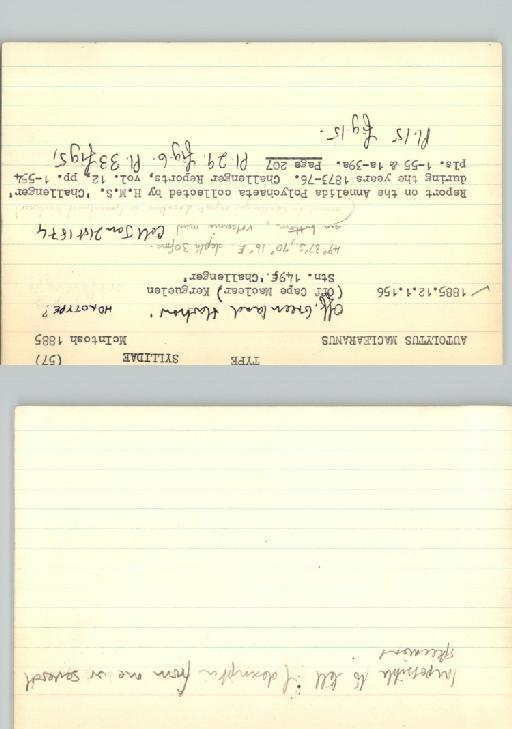 TYPE SYLLIDAE (57)
AUTOLYTUS MACLEARANUS McIntosh 1885
Off. Greenland Harbour' HOLOTYPE?
1885.12.1.156 (Off Cape Maclear) Kerguelen
Stn. 149F. 'Challenger'
47° 37'S, 70° 16'E. depth 30fms.
bottom, volcanic mud Coll Jan 21st 1874
Report on the Annelida Polychaeta collected by H.M.S. 'Challenger'
during the years 1873-76. Challenger Reports, vol. 12, pp. 1-554
pls. 1-55 & 1a-39a. Page 207 Pl. 29, fig 6. Pl. 33 fig 5,
Pl. 15 fig 15.
Impossible to tell if description from one or several
specimens